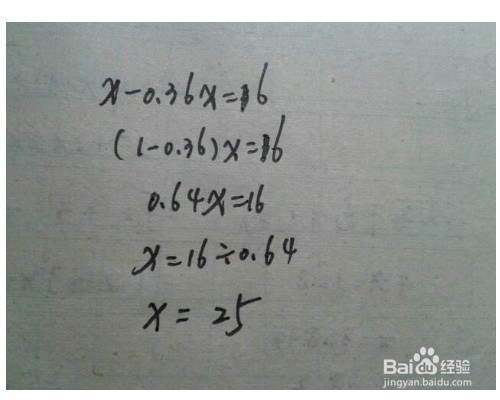 x-0.36x=16
(1-0.36)x=16
0.64x=16
x=16÷0.64
x=25
Baidu经验
jingyan.baidu.com